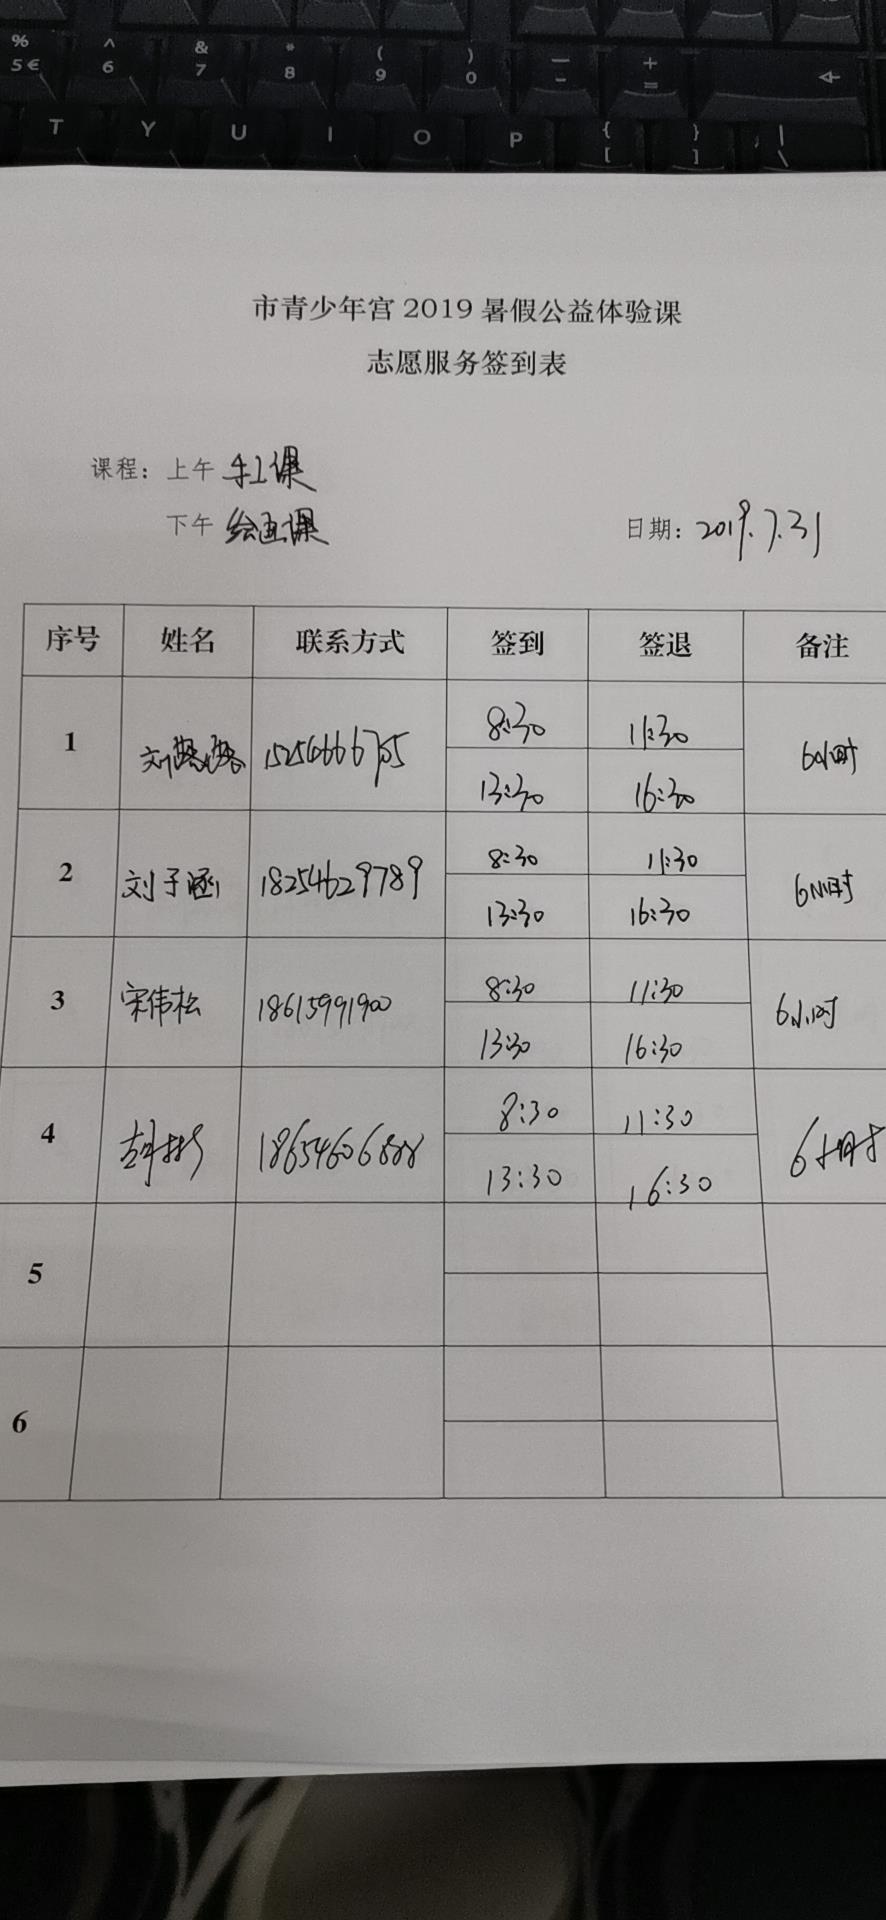 % ^ & * ( ) — +
5 € 6 7 8 9 0 - =
T Y U I O P { } |
[ ] \
市青少年宫 2019 暑假公益体验课
志愿服务签到表
课程：上午 手工课
下午 绘画课 日期：2019.7.31
序号 姓名 联系方式 签到 签退 备注
8:30 11:30
1 刘 6小时
13:30 16:30
8:30 11:30
2 刘子涵 18254629789 6小时
13:30 16:30
8:30 11:30
3 宋伟松 18615991900 6小时
13:30 16:30
8:30 11:30
4 18654606888 6小时
13:30 16:30
5
6